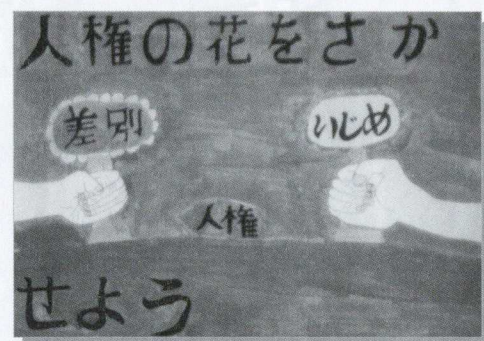 人権の花をさか
差別
いじめ
人権
せよう